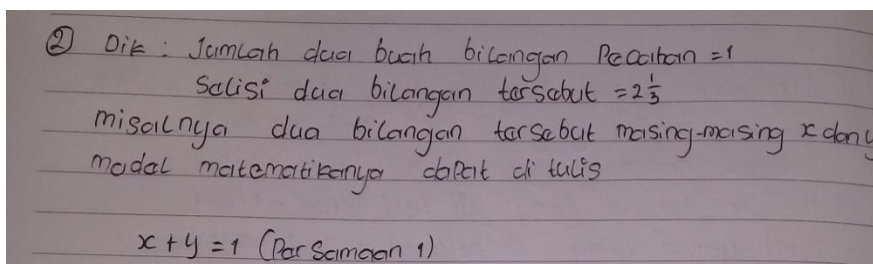 ② Dik : Jumlah dua buah bilangan Pecahan = 1
Selisi dua bilangan tersebut = 2 1/3
misalnya dua bilangan tersebut masing-masing x dan y
model matematikanya dapat di tulis
x + y = 1 (Persamaan 1)